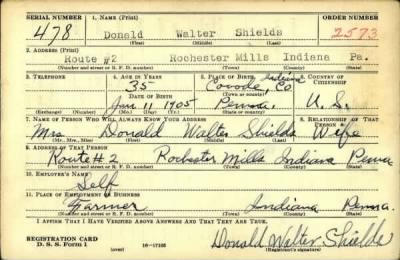 SERIAL NUMBER 1. NAME (Print) ORDER NUMBER
478 Donald Walter Shields 2573
(First) (Middle) (Last)
2. ADDRESS (Print)
Route #2 Rochester Mills Indiana Pa.
(Number and street or R. F. D. number) (Town) (County) (State)
3. TELEPHONE 4. AGE IN YEARS 5. PLACE OF BIRTH 6. COUNTRY OF CITIZENSHIP
35 Covode, Indiana Co
DATE OF BIRTH (Town or county)
Jan. 11 1905 Penna. U. S.
(Exchange) (Number) (Mo.) (Day) (Yr.) (State or country)
7. NAME OF PERSON WHO WILL ALWAYS KNOW YOUR ADDRESS 8. RELATIONSHIP OF THAT PERSON
Mrs Donald Walter Shields Wife
(Mr., Mrs., Miss) (First) (Middle) (Last)
9. ADDRESS OF THAT PERSON
Route #2 Rochester Mills Indiana Penna
(Number and street or R. F. D. number) (Town) (County) (State)
10. EMPLOYER'S NAME
Self
11. PLACE OF EMPLOYMENT OR BUSINESS
Farmer Indiana Penna.
(Number and street or R. F. D. number) (Town) (County) (State)
I AFFIRM THAT I HAVE VERIFIED ABOVE ANSWERS AND THAT THEY ARE TRUE.
REGISTRATION CARD
D. S. S. Form 1 (over) 16—17105 Donald Walter Shields
(Registrant's signature)